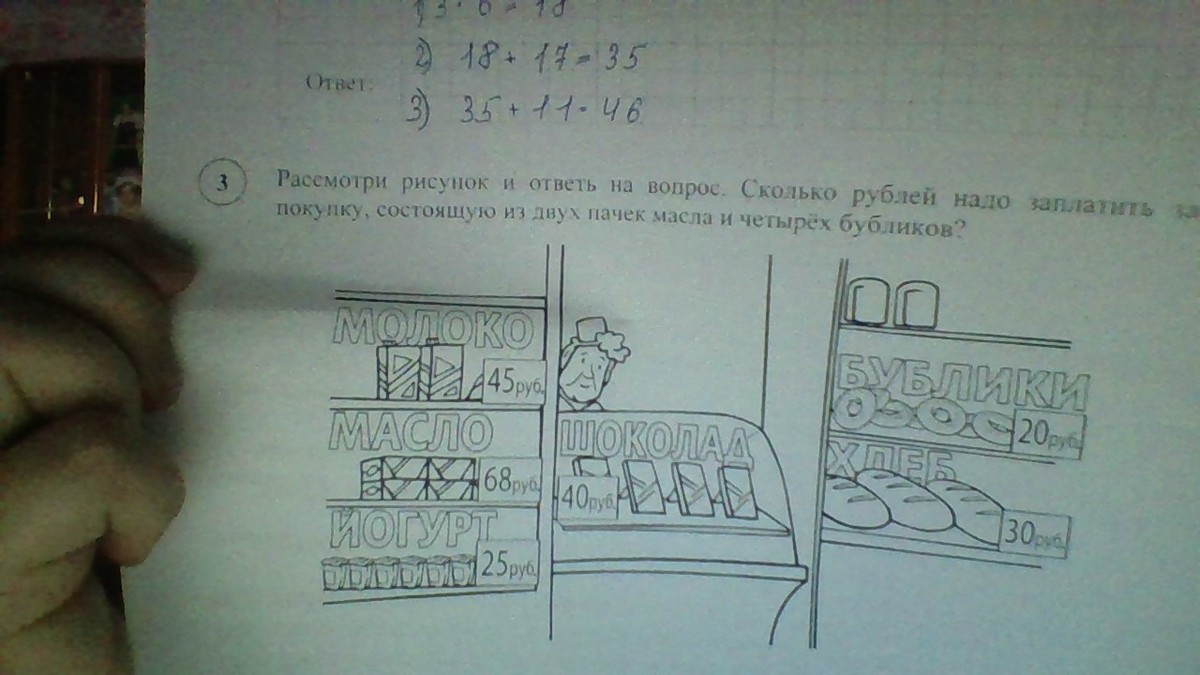 1) 3 · 6 = 18
2) 18 + 17 = 35
Ответ:
3) 35 + 11 = 46
3
Рассмотри рисунок и ответь на вопрос. Сколько рублей надо заплатить за
покупку, состоящую из двух пачек масла и четырёх бубликов?
МОЛОКО
45руб.
МАСЛО
68руб.
ЙОГУРТ
25руб.
ШОКОЛАД
40руб.
БУБЛИКИ
20руб.
ХЛЕБ
30руб.